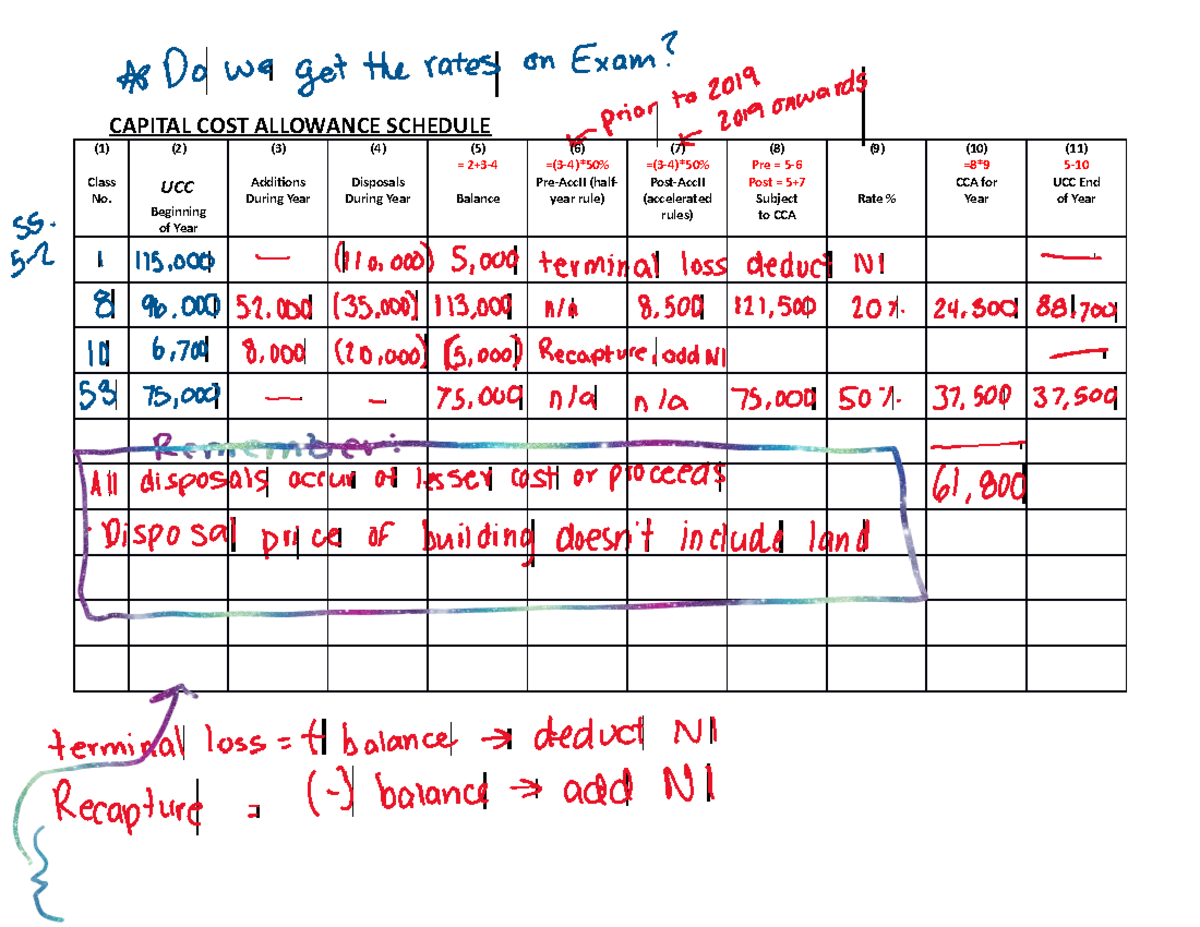 * Do we get the rates on Exam?
prior to 2019
2019 onwards
CAPITAL COST ALLOWANCE SCHEDULE
(1) (2) (3) (4) (5) (6) (7) (8) (9) (10) (11)
= 2+3-4 =(3-4)*50% =(3-4)*50% Pre = 5-6 =8*9 5-10
Class No. UCC Beginning of Year Additions During Year Disposals During Year Balance Pre-AccII (half-year rule) Post-AccII (accelerated rules) Post = 5+7 Subject to CCA Rate % CCA for Year UCC End of Year
SS.
5-2
1 115,000 — (110,000) 5,000 terminal loss deduct NI —
8 96,000 52,000 (35,000) 113,000 n/a 8,500 121,500 20%. 24,300 88,700
10 6,700 8,000 (20,000) (5,000) Recapture, add NI —
53 75,000 — - 75,000 n/a n/a 75,000 50%. 37,500 37,500
Remember:
All disposals occur at lesser cost or proceeds 61,800
· Disposal price of building doesn't include land
terminal loss = + balance → deduct NI
Recapture = (-) balance → add NI